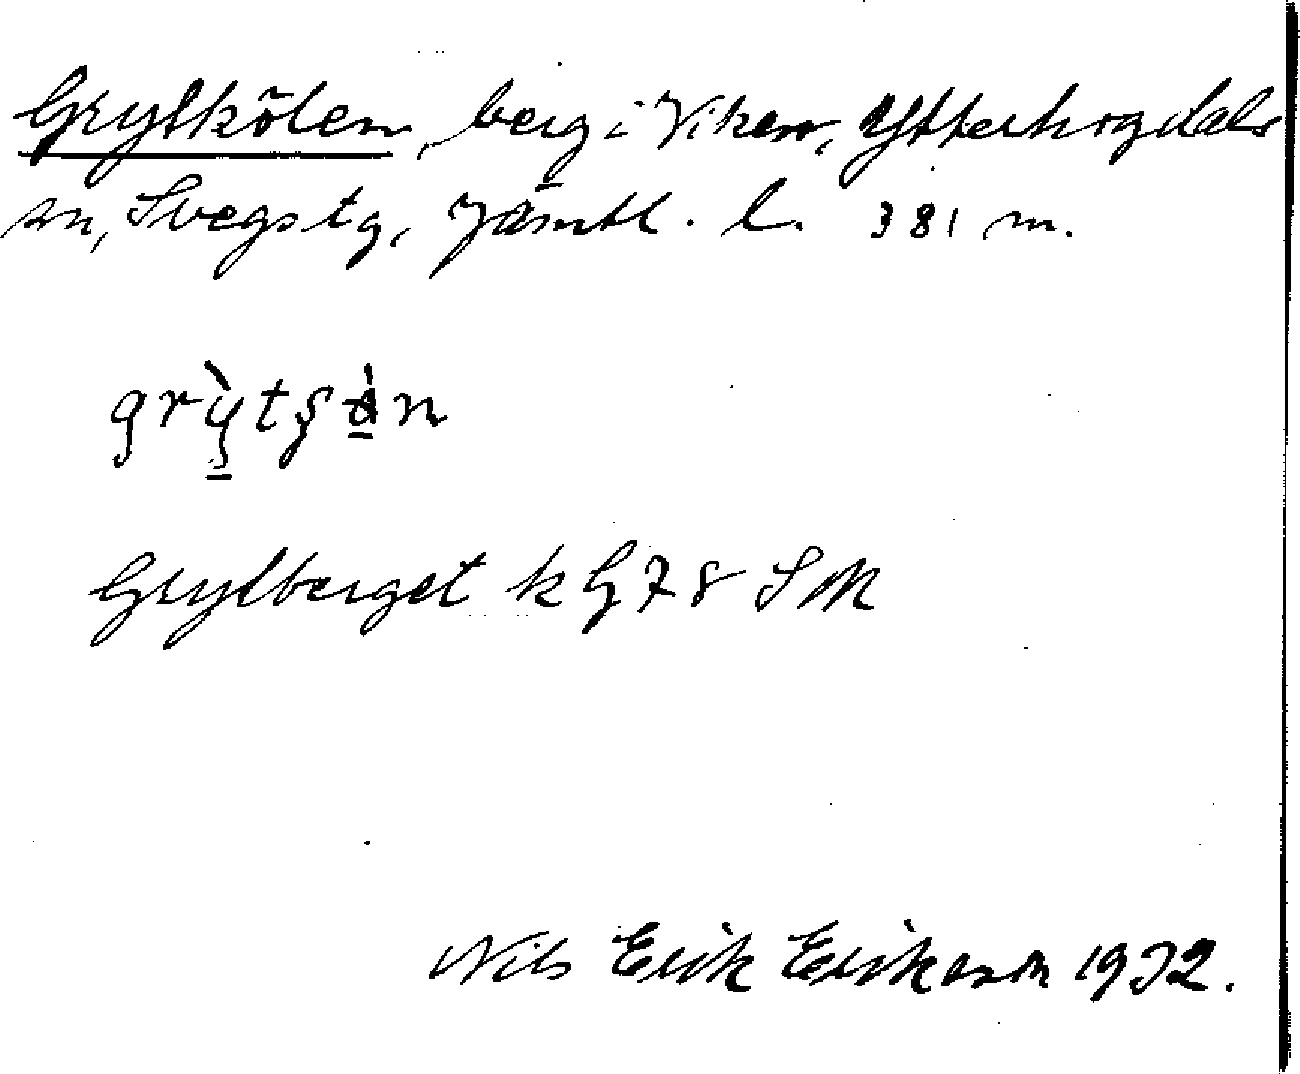 Grytkölen, berg i Viken, Ytterhogdals
sn, Svegs tg, Jämtl. l. 381 m.
Grytberget k G78 SM
Nils Erik Erikson 1932.